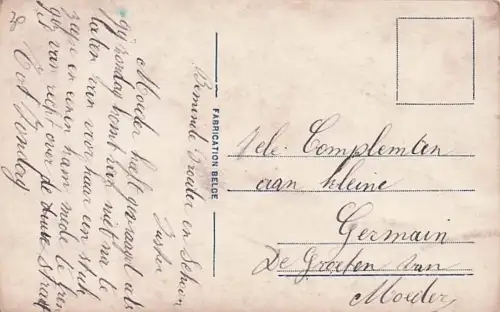 Beminde Broeder en Schoon
Zuster
Moeder heeft gevraagd als
gij zondag komt van niet na te
laten van voor haar een stuk
en eenen ham mede te
van recht over de straat
Tot Zondag
FABRICATION BELGE
Vele Complemten
aan kleine
Germain
De Groeten van
Moeder